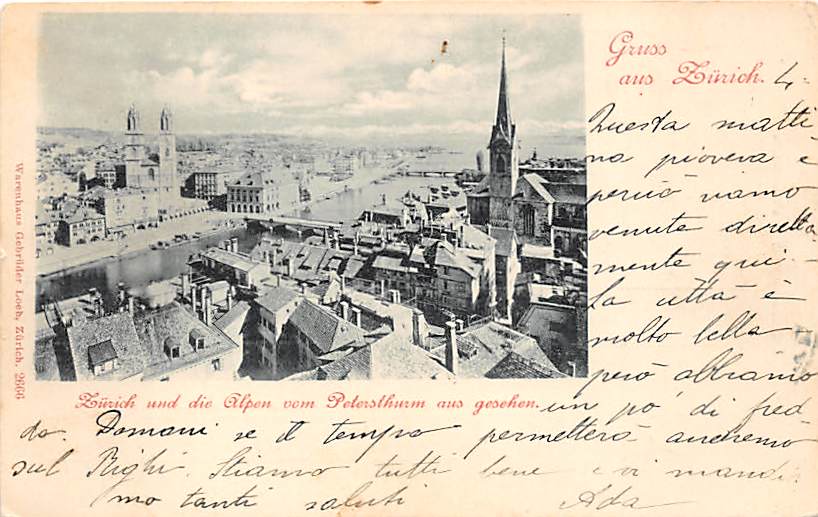 Gruss
aus Zürich. 4-
Questa matti
na pioveva e
perciò siamo
venute diretta
mente qui -
La città è
molto bella
però abbiamo
Zürich und die Alpen vom Petersthurm aus gesehen.
un po' di fred
do. Domani se il tempo permetterà andremo
sul Righi. Stiamo tutti bene e vi mandia
mo tanti saluti Ada
Warenhaus Gebrüder Loeb, Zürich. 2666